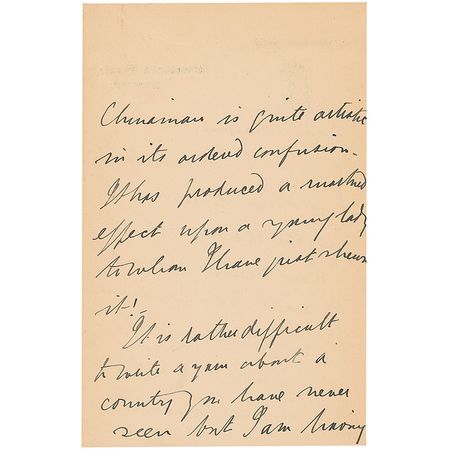 Chinaman is quite artistic
in its ordered confusion.
It has produced a marked
effect upon a young lady
to whom I have just shewn
it!
It is rather difficult
to write a yarn about a
country you have never
seen but I am having